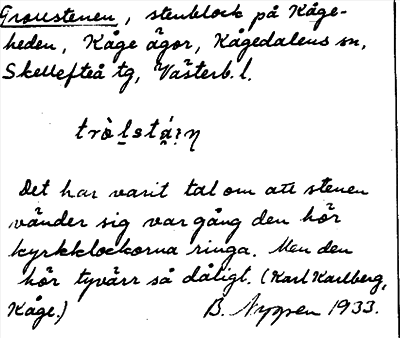 Trollstenen, stenblock på Kåge-
heden, Kåge ägor, Kågedalens sn,
Skellefteå tg, Västerb. l.
Det har varit tal om att stenen
vänder sig var gång den hör
kyrkklockorna ringa. Men den
hör tyvärr så dåligt. (Karl Karlberg,
Kåge.) B. 1933.